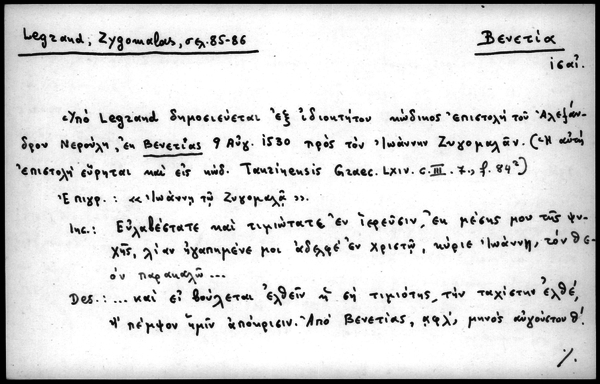 Legrand, Zygomalas, σελ. 85-86
Βενετία
ισαΐ.
«Ὑπὸ Legrand δημοσιεύεται ἐξ ἰδιοκτήτου κώδικος ἐπιστολὴ τοῦ Ἀλεξάν-
δρου Νερούλη, ἐκ Βενετίας 9 Αὐγ. 1530 πρὸς τὸν Ἰωάννην Ζυγομαλᾶν. (Ἡ αὐτὴ
ἐπιστολὴ εὕρηται καὶ εἰς κώδ. Taurinensis Graec. LXIV. c. III. 7., f. 84²)
Ἐπιγρ.: «Ἰωάννῃ τῷ Ζυγομαλᾷ».
Inc.: Εὐλαβέστατε καὶ τιμιώτατε ἐν ἱερεῦσιν, ἐκ μέσης μου τῆς ψυ-
χῆς, λίαν ἠγαπημένε μοι ἀδελφὲ ἐν Χριστῷ, κύριε Ἰωάννη, τὸν θε-
ὸν παρακαλῶ ...
Des.: ... καὶ εἰ βούλεται ἐλθεῖν ἡ σὴ τιμιότης, τὴν ταχίστην ἐλθέ,
ἢ πέμψον ἡμῖν ἀπόκρισιν. Ἀπὸ Βενετίας, ͵αφλʹ, μηνὸς αὐγούστου θʹ.
./.